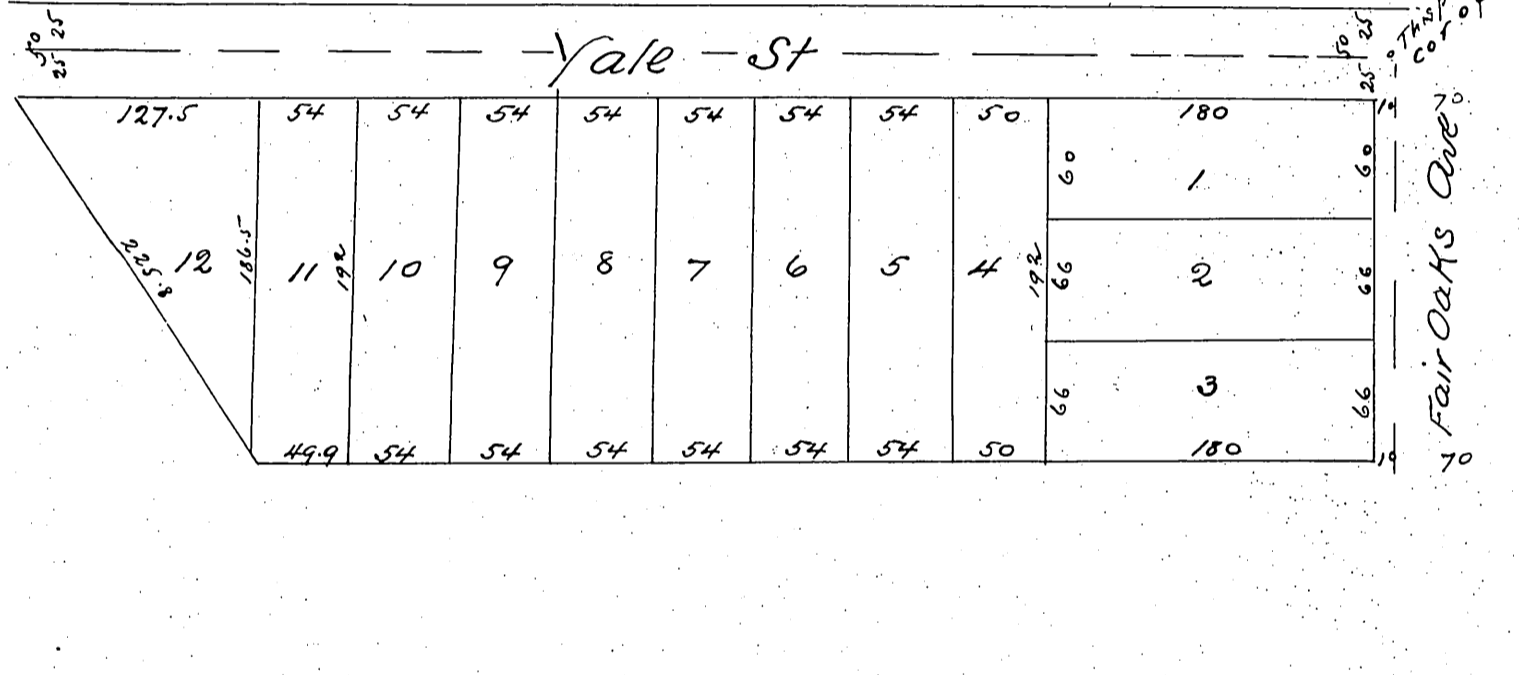 50 25 25
Yale St
50 25 25
Cor
127.5 54 54 54 54 54 54 54 50 180
10 70
60 1 60
225.8 12 186.5 11 192 10 9 8 7 6 5 4 192 66 2 66
66 3 66
49.9 54 54 54 54 54 54 50 180
10 70
Fair Oaks Ave